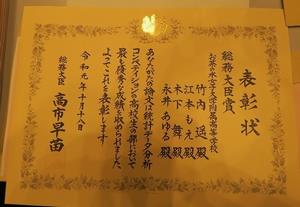 表彰状
総務大臣賞
お茶の水女子大学附属高等学校
竹内 遥殿
江本 もえ殿
木下 舞殿
永井 あゆる殿
あなたがたの論文は統計データ分析
コンペティション高校生の部において
最も優秀な成績を収められました
よってこれを表彰します
令和元年十月十八日
総務大臣
高市早苗